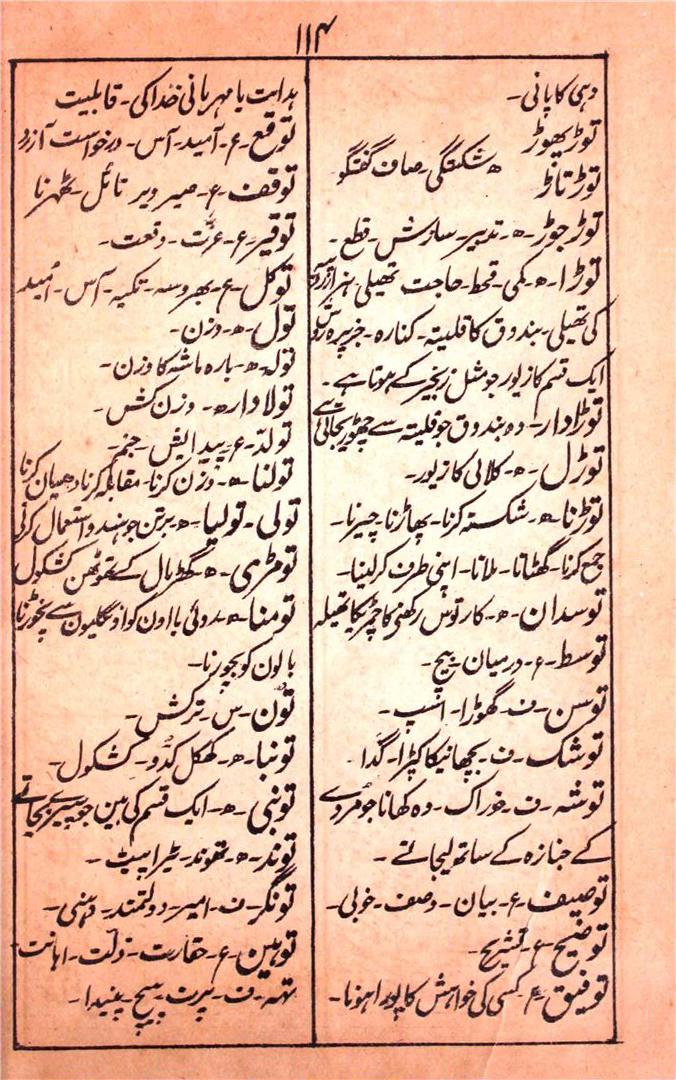 ۱۱۴
دہی کا پانی۔
توڑ پھوڑ
توڑ تاڑ
ھ شکستگی۔ صاف گفتگو
توڑ جوڑ۔ ھ۔ تدبیر۔ سازش۔ قطع۔
توڑا۔ ھ۔ کمی۔ قحط۔ حاجت تھیلی ہزار
کی تھیلی۔ بندوق کا فلیتہ۔ کنارہ۔ جزیرہ
ایک قسم کا زیور جو مثل زنجیر کے ہوتا ہے۔
توڑا دار۔ وہ بندوق جو فلیتہ سے چھوڑیجاتی ہے
توڑل۔ ھ۔ کلائی کا زیور۔
توڑنا۔ ھ۔ شکستہ کرنا۔ پھاڑنا۔ چیرنا۔
جمع کرنا۔ گھٹانا۔ ملانا۔ اپنی طرف کر لینا۔
توسدان۔ ھ۔ کارتوس رکھنے کا چمڑیکا تھیلہ
توسط۔ ع۔ درمیان۔ بیچ۔
توسن۔ ف۔ گھوڑا۔ اسپ۔
توشک۔ ف۔ بچھانیکا کپڑا۔ گدا۔
توشہ۔ ف۔ خوراک۔ وہ کھانا جو مردے
کے جنازہ کے ساتھ لیجاتے۔
توصیف۔ ع۔ بیان۔ وصف۔ خوبی۔
توضیح۔ ع۔ تشریح۔
توفیق۔ ع۔ کسی کی خواہش کا پورا ہونا۔
ہدایت یا مہربانی خدا کی۔ قابلیت
توقع۔ ع۔ اُمید۔ آس۔ درخواست آرزو
توقف۔ ع۔ صبر دیر تائل۔ ٹھہرنا
توقیر۔ ع۔ عزّت۔ وقعت۔
توکل۔ ع۔ بھروسہ۔ تکیہ۔ آس۔ اُمید
تول۔ ھ۔ وزن۔
تولہ۔ ھ۔ بارہ ماشہ کا وزن۔
تولا دار۔ ھ۔ وزن کش۔
تولد۔ ع۔ پیدایش۔ جنم۔
تولنا۔ ھ۔ وزن کرنا۔ مقابلہ کرنا دھیان کرنا
تولی۔ تولیا۔ ھ۔ برتن جو ہندو استعمال کرتے
تومڑی۔ ھ۔ گھڑیال کے تھوتھن کشکول
تومنا۔ ھ۔ روئی یا اون کو اونگلیوں سے نچوڑنا
بالون کو نچورنا۔
تون۔ س۔ ترکش۔
تونبا۔ ھ۔ کھکل کدّو۔ کشکول۔
تونبی۔ ھ۔ ایک قسم کی بین جو سپیرے بجاتے
توند۔ ھ۔ تھوند۔ بڑا پیٹ۔
تونگر۔ ف۔ امیر۔ دولتمند۔ دہنی۔
توہین۔ ع۔ حقارت۔ ذلّت۔ اہانت۔
تہہ۔ ف۔ پرت۔ پیچ۔ پیندا۔